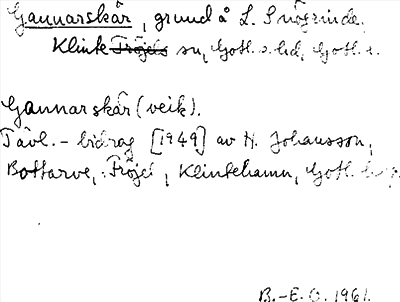 Gannarskär, grund å L. Snögrinde,
Klinte Fröjels sn, Gotl. s. hd, Gotl. l.
Gannarskär (veik).
Tävl.-bidrag [1949] av H. Johansson,
Bottarve, Fröjel, Klintehamn, Gotl.
B.-E. O. 1961